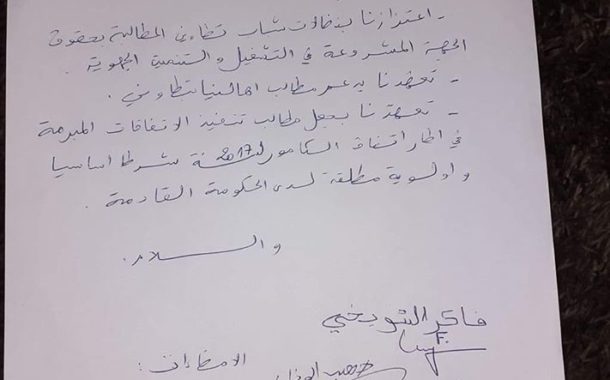 - اعتزازنا بنضالات شباب تطاوين المطالبة بحقوق
الجهة المشروعة في التشغيل والتنمية الجهوية.
- تعهدنا بدعم مطالب اهالينا بتطاوين.
- تعهدنا بجعل مطالب تنفيذ الاتفاقات المبرمة
في اطار اتفاق الكامور لسنة 2017 شرطا اساسيا
و اولوية مطلقة لدى الحكومة القادمة.
والسلام.
فاكر الشويخي
الامضاءات: